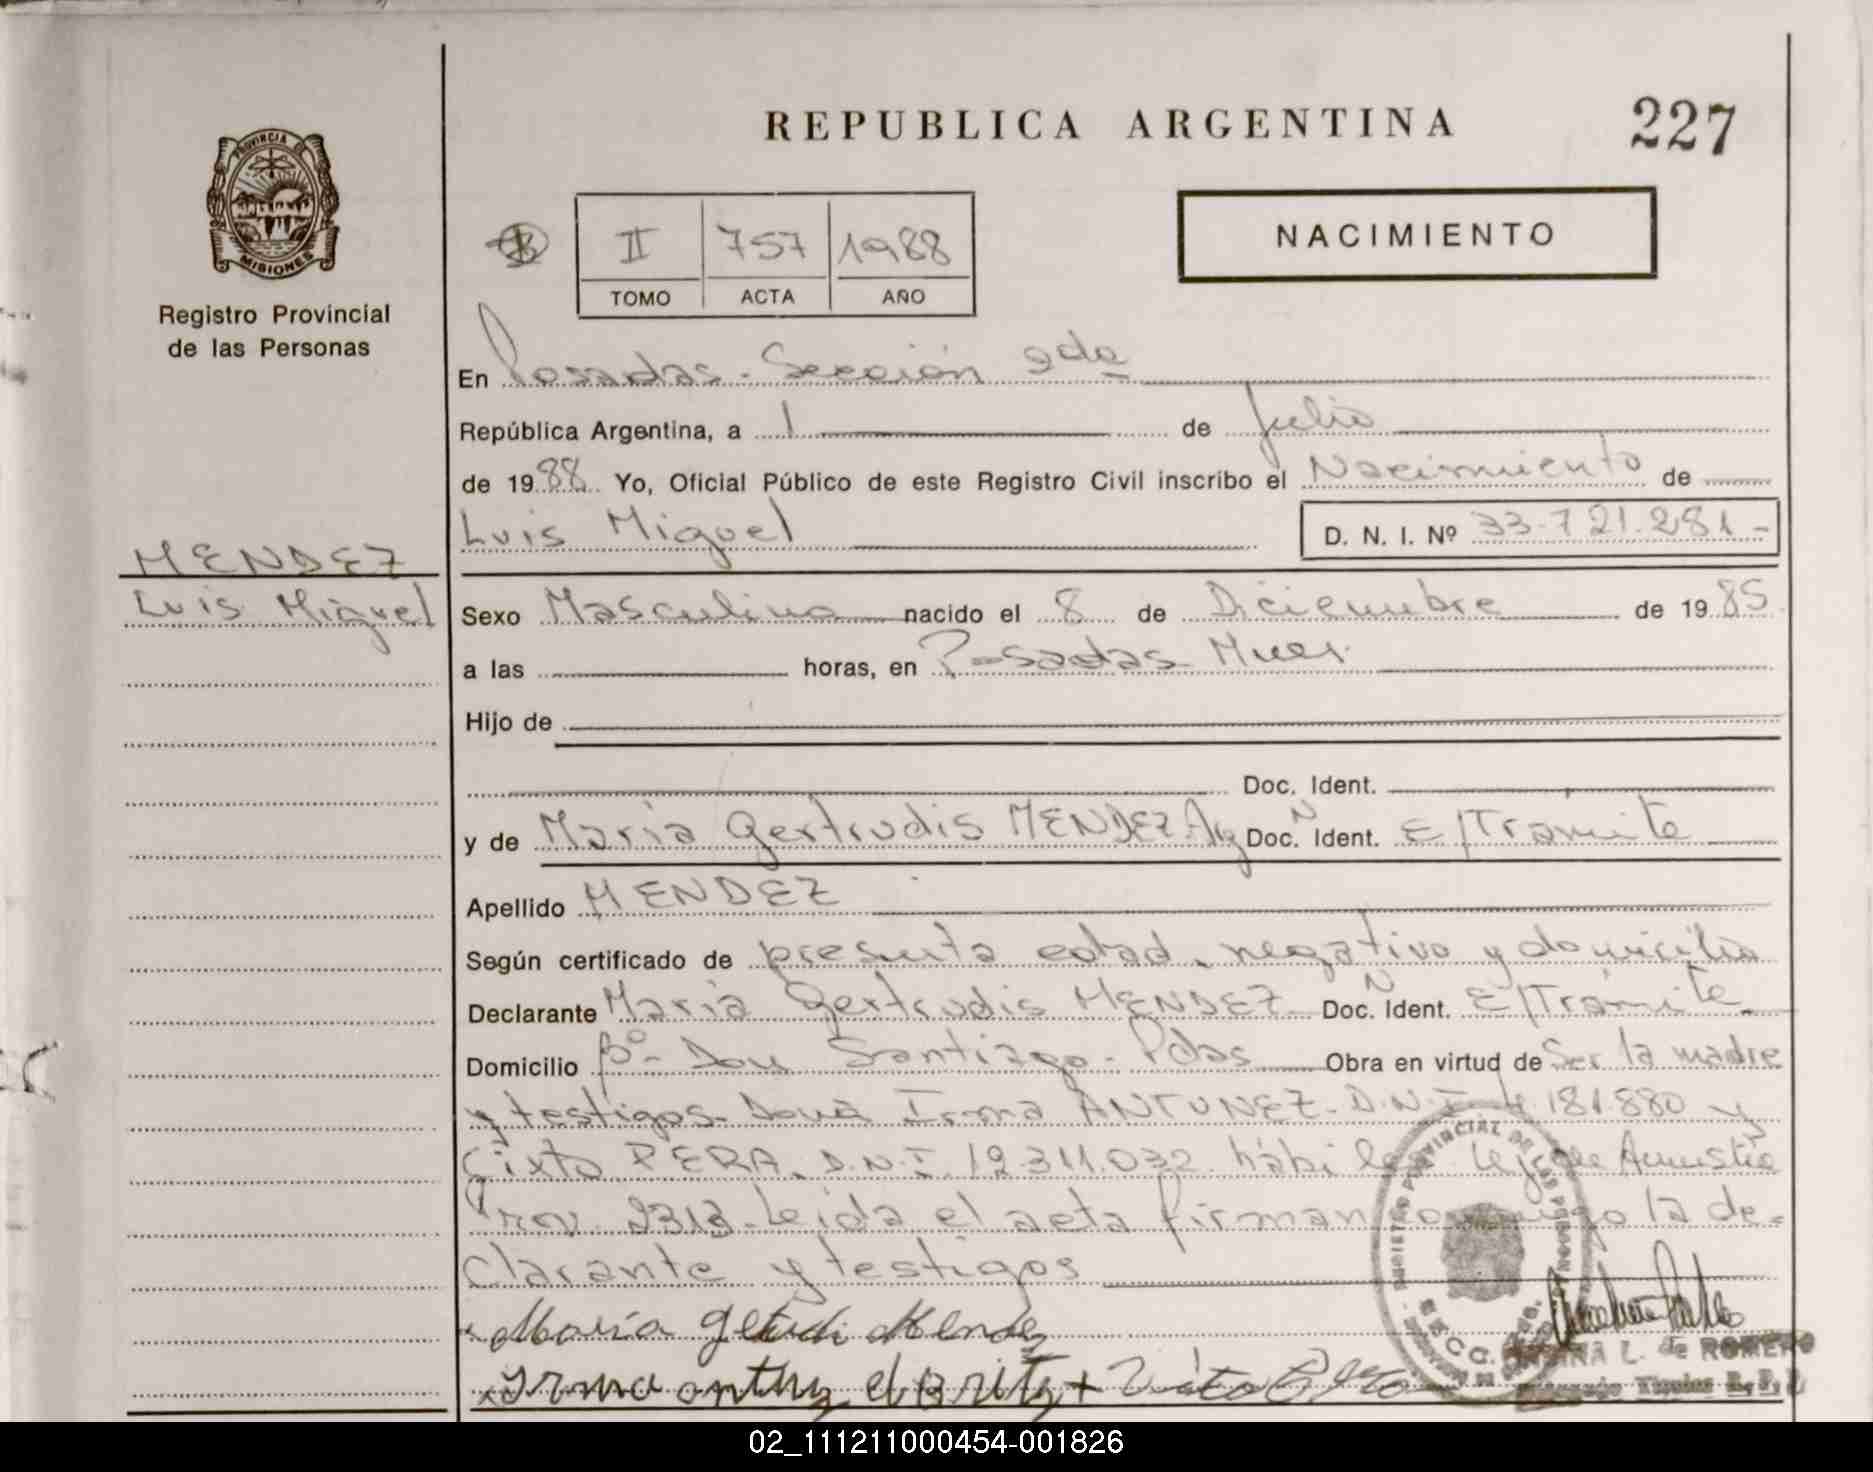 REPUBLICA ARGENTINA
227
PROVINCIA DE
MISIONES
Registro Provincial
de las Personas
II 757 1988
TOMO ACTA AÑO
NACIMIENTO
En Posadas - Sección 2da
República Argentina, a 1 de Julio
de 1988 Yo, Oficial Público de este Registro Civil inscribo el Nacimiento de
Luis Miguel D. N. I. Nº 33.721.281-
MENDEZ
Luis Miguel
Sexo Masculino nacido el 8 de Diciembre de 1985
a las horas, en Posadas
Hijo de
Doc. Ident.
y de Maria Gertrudis MENDEZ Arg Doc. N Ident. E/Tramite
Apellido MENDEZ
Según certificado de presunta edad, negativo y domicilio
Declarante Maria Gertrudis MENDEZ Doc. N Ident. E/Tramite
Domicilio Bº Don Santiago - Pdas Obra en virtud de Ser la madre
y testigos - Doña Irma ANTUNEZ - D.N.I. 4.181.880 y
Cixto PERA, D.N.I. 12.311.032 hábiles Ley de Amnistia
Prov. 2313. Leida el acta firman la de-
clarante y testigos
Maria Mendez
Irma
L. de ROMERO
02_111211000454-001826